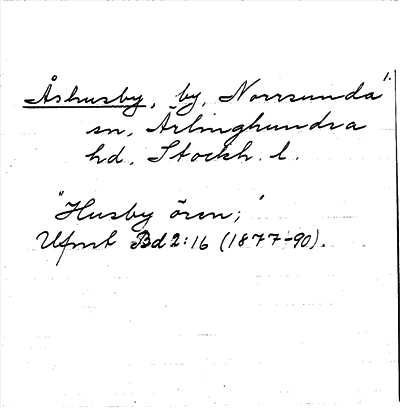 Åshusby, by, Norrsunda
sn, Ärlinghundra
hd, Stockh. l.
"Husby ören;"
Ufmt Bd 2:16 (1877-90).